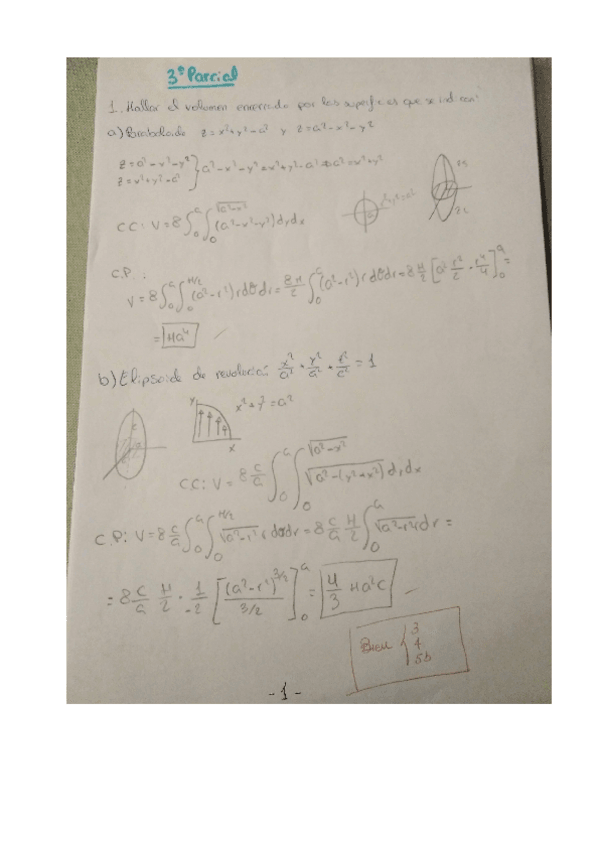 3º Parcial
1. Hallar el volumen encerrado por las superficies que se indican:
a) Paraboloide z = x²+y²-a² y z = a²-x²-y²
z = a²-x²-y²
z = x²+y²-a² } a²-x²-y² = x²+y²-a² ⇒ a² = x²+y²
x²+y²=a²
CC: V = 8∫₀ᵃ∫₀^√(a²-x²) (a²-x²-y²) dy dx
C.P.:
V = 8∫₀ᵃ∫₀^(π/2) (a²-r²) r dθ dr = 8π/2 ∫₀ᵃ (a²-r²) r dθ dr = 8 π/2 [a² r²/2 - r⁴/4]₀ᵃ =
= πa⁴
b) Elipsoide de revolución x²/a² + y²/a² + z²/c² = 1
y x x²+y²=a²
CC: V = 8 c/a ∫₀ᵃ∫₀^√(a²-x²) √(a²-(y²+x²)) dy dx
C.P: V = 8 c/a ∫₀ᵃ∫₀^(π/2) √(a²-r²) r dθ dr = 8 c/a π/2 ∫₀ᵃ √(a²-r²) r dr =
= 8 c/a π/2 · 1/-2 [(a²-r²)^(3/2) / 3/2]₀ᵃ = 4/3 πa²c
3
4
5b
-1-